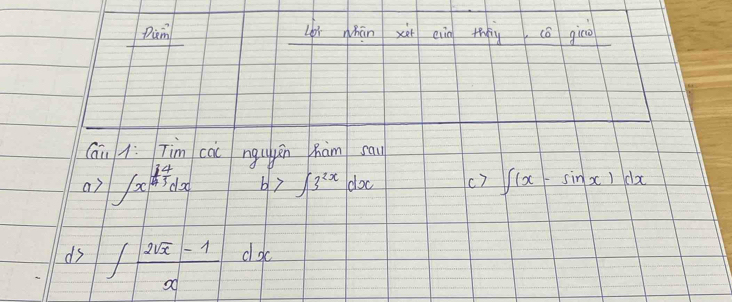 Điểm Lời nhận xét của thầy, cô giáo
Câu 1: Tìm các nguyên hàm sau
a> ∫x^{4/3}dx b> ∫3^{2x} dx c> ∫(x - sin x) dx
d> ∫ (2√x - 1)/x dx